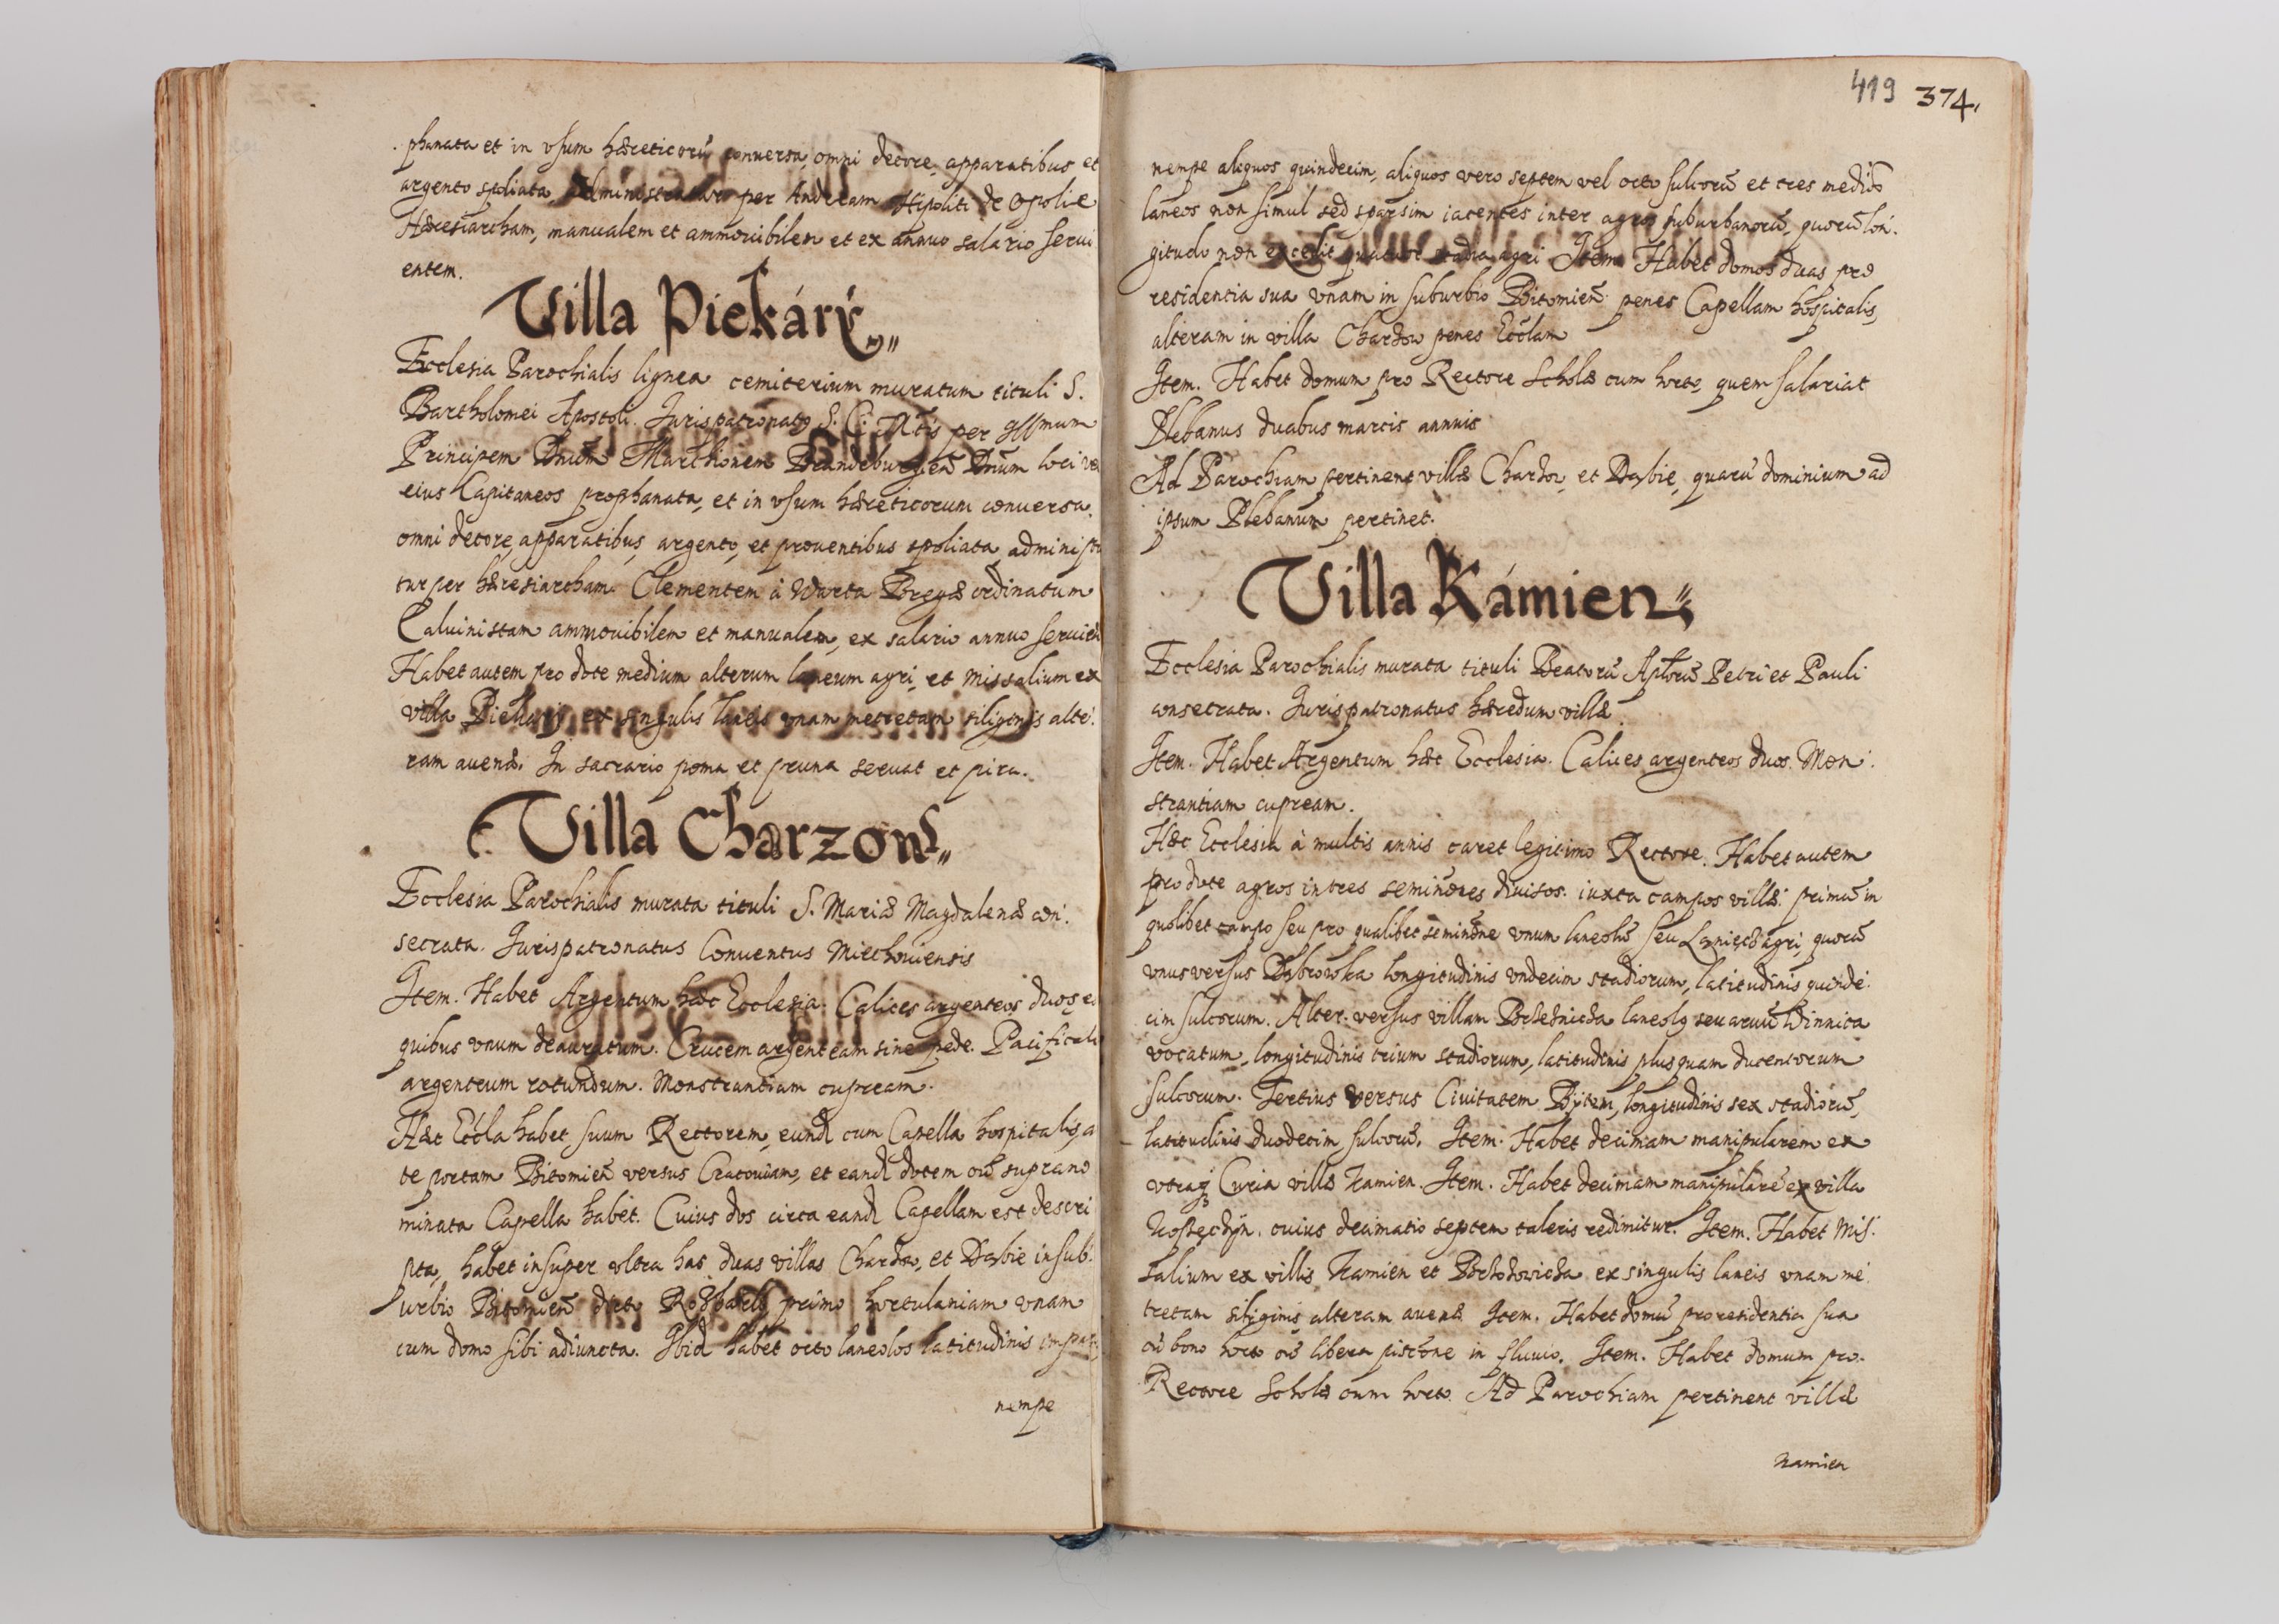 phanata et in vsum hæreticorũ conuersa, omni decore, apparatibus et
argento spoliata, administratur per Andream Hipoliti de Opolie
Hæresiarcham, manualem et ammouibilem et ex annuo salario serui
entem.
Villa Piekáry
Ecclesia Parochialis lignea cemiterium muratum tituli S.
Bartholomei Apostoli. Jurispatronatus S. C. Mtis per Illmum
Principem Dnum Marchionem Brandeburgen Dnum loci
eius Capitaneos prophanata, et in vsum hæreticorum conuersa.
omni decore, apparatibus, argento, et prouentibus spoliata, administr
tur per hæresiarcham Clementem à Warta Bregæ ordinatum
Caluinistam ammouibilem et manualem, ex salario annuo seruien
Habet autem pro dote medium alterum laneum agri, et missalium ex
villa Piekary ex singulis laneis vnam metretam siliginis alte
ram auenæ. In sacrario poma et pruna seruat et pira.
Villa Charzow
Ecclesia Parochialis murata tituli S. Mariæ Magdalenæ con
secrata. Jurispatronatus Conuentus Miechouiensis
Item. Habet Argentum hæc Ecclesia. Calices argenteos duos, e
quibus vnum deauratum. Crucem argenteam sine pede. Pacificale
argenteum rotundum. Monstrantiam cupream.
Hæc Eccla habet suum Rectorem, eund cum Capella hospitalis, a
te portam Bitomien versus Cracouiam, et eand dotem suprano
minata Capella habet. Cuius dos circa eand Capellam est descri
pta, habet insuper vltra has duas villas Charzow, et Dąbie in sub
urbio Bitomien dicto Rozbark primo hortulaniam vnam
cum domo sibi adiuncta. Ibid habet octo laneolos latitudinis impar
nempe
419 374.
nempe aliquos quindecim, aliquos vero septem vel octo sulcorũ et tres medios
laneos non simul sed sparsim iacentes inter agros suburbanorũ, quorũ lon
gitudo non excedit quatuor stadia agri Item. Habet domos duas pro
residentia sua vnam in suburbio Bitomien penes Capellam hospitalis,
alteram in villa Charzow penes Ecclam
Item. Habet domum pro Rectore Scholæ cum horto, quem salariat
Plebanus duabus marcis annuis
Ad Parochiam pertinent villæ Charzow, et Dąbie, quarũ dominium ad
ipsum Plebanum pertinet.
Villa Kámien
Ecclesia Parochialis murata tituli Beatorũ Aplorũ Petri et Pauli
consecrata. Jurispatronatus hæredum villæ.
Item. Habet Argentum hæc Ecclesia. Calices argenteos duos. Mon
strantiam cupream.
Hæc Ecclesia à multis annis caret legitimo Rectore. Habet autem
pro dote agros in tres seminones diuisos. iuxta campos villæ. primũ in
quolibet campo seu pro qualibet seminone vnum laneolũ seu agri, quorũ
vnus versus Dąbrowka longitudinis vndecim stadiorum, latitudinis quinde
cim sulcorum. Alter. versus villam laneolus seu aruũ Winnica
vocatum, longitudinis trium stadiorum, latitudinis plusquam ducentorum
sulcorum. Tertius versus Ciuitatem Byten, longitudinis sex stadiorũ,
latitudinis duodecim sulcorũ. Item. Habet decimam manipularem ex
vtraq Curia villæ Kamien. Item. Habet decimam manipularẽ ex villa
cuius decimatio septem taleris redimitur. Item. Habet Mis
salium ex villis Kamien et ex singulis laneis vnam me
tretam siliginis, alteram auenæ Item. Habet domũ pro residentia sua
cũ bono horto cũ libera piscone in fluuio. Item. Habet domum pro
Rectore Scholæ cum horto. Ad Parochiam pertinent villæ
Kamien